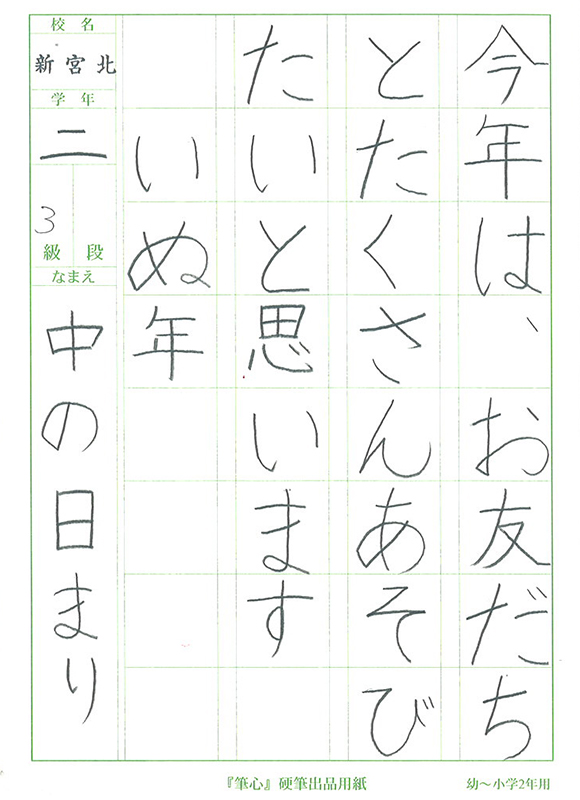 今年は、お友だち
とたくさんあそび
たいと思います
いぬ年
校名
新宮北
学年
二
3
級 段
なまえ
中の日まり
『筆心』硬筆出品用紙
幼〜小学2年用